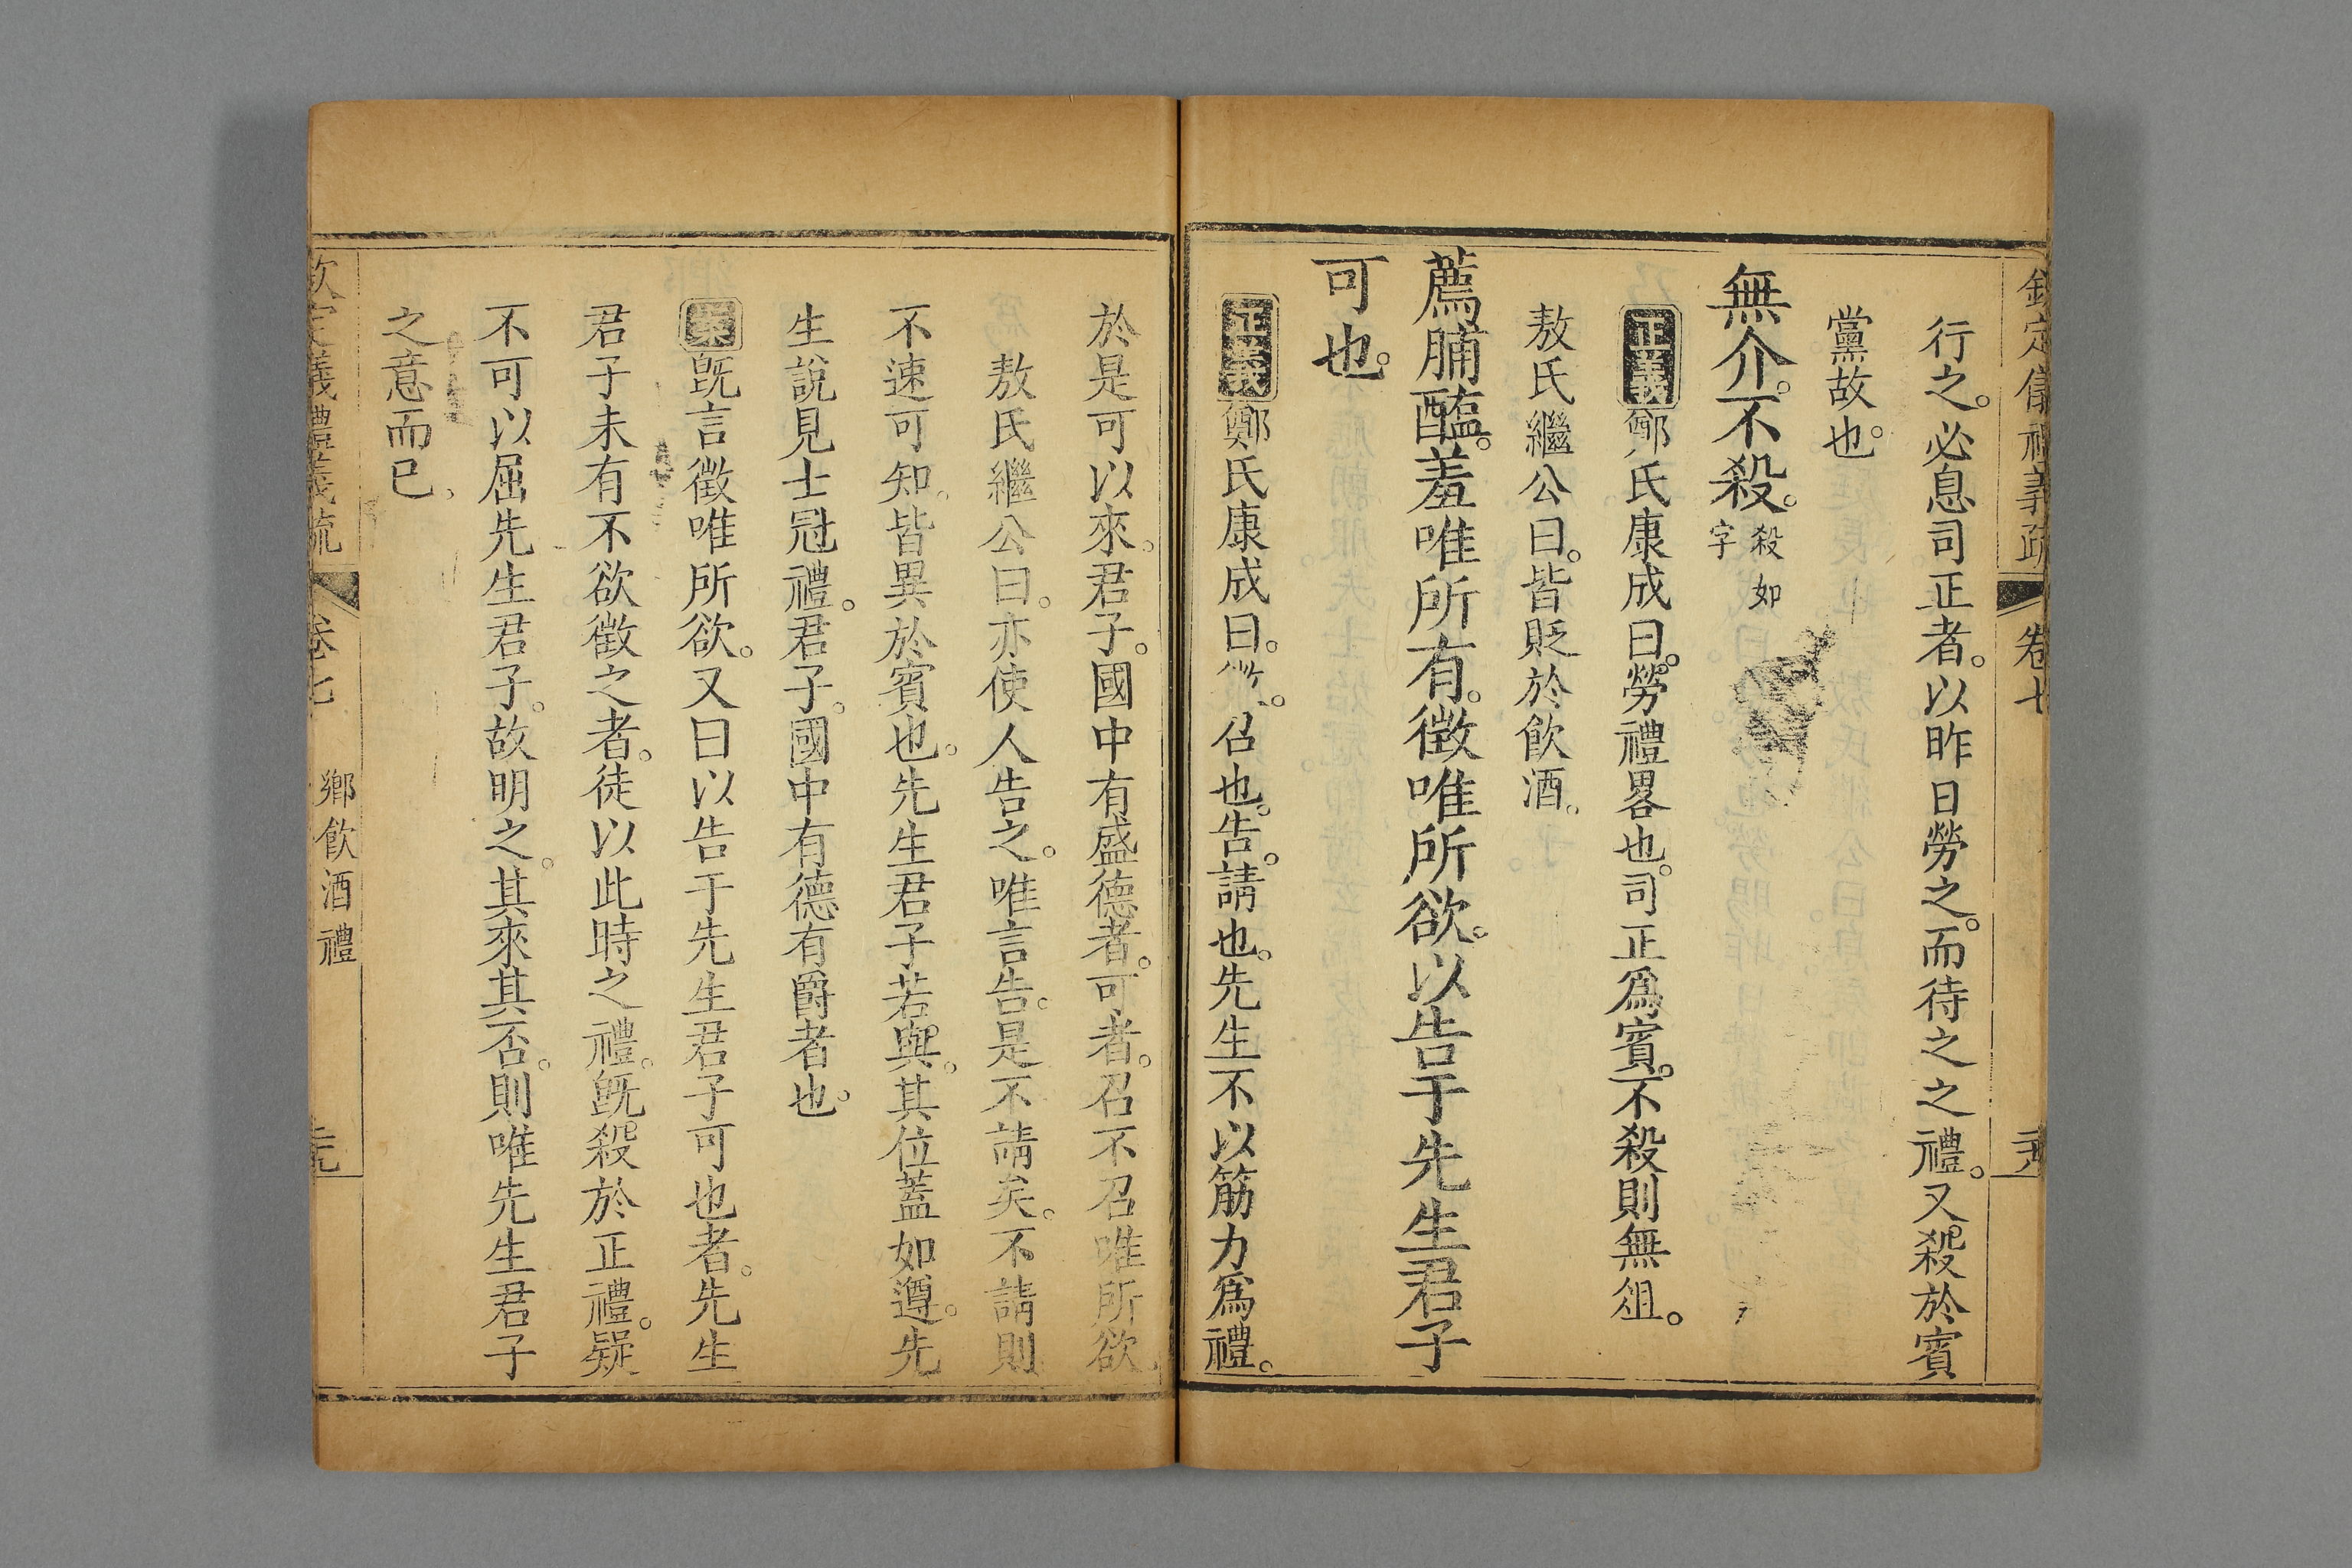 欽定儀禮義疏 卷七
行之。必息司正者。以昨日勞之。而待之之禮。又殺於賓
黨故也。
無介。不殺。殺如字
正義鄭氏康成曰。勞禮畧也。司正爲賓。不殺則無俎。
敖氏繼公曰。皆貶於飲酒。
薦脯醢。羞唯所有。徵唯所欲。以告于先生君子
可也。
正義鄭氏康成曰。召也。告。請也。先生不以筋力爲禮。
於是可以來。君子。國中有盛德者。可者。召不召唯所欲
敖氏繼公曰。亦使人告之。唯言告。是不請矣。不請則
不速可知。皆異於賓也。先生君子若與。其位蓋如遵。先
生說見士冠禮。君子。國中有德有爵者也。
案旣言徵唯所欲。又曰以告于先生君子可也者。先生
君子未有不欲徵之者。徒以此時之禮。旣殺於正禮。疑
不可以屈先生君子。故明之。其來其否。則唯先生君子
之意而已。
欽定儀禮義疏 卷七 鄉飲酒禮